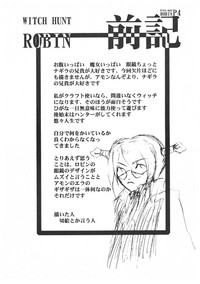 WITCH HUNT
ROBIN
前記
P4
お腹いっぱい 魔女いっぱい 眼鏡ちょっと
ナギラの兄貴が大好きです、今回欠片ほども
描いてませんが、アモンなんぞより、ナギラ
の兄貴が大好きです。
私がクラフト使いなら、間違いなくウィッチ
になります、そのほうが面白そうですし
ひが な一日無意味に能力使って遊びます
後始末はハンターがしてくれます
悠々人生です
自分で何をかいているか
良くわからなくなっ
てきました
とりあえず思う
ことは、ロビンの
眼鏡のデザインが
ムズイと言うことと
アモンのエラの
ギザギザは一体何なのか
それだけです
描いた人
切絵とか言う人